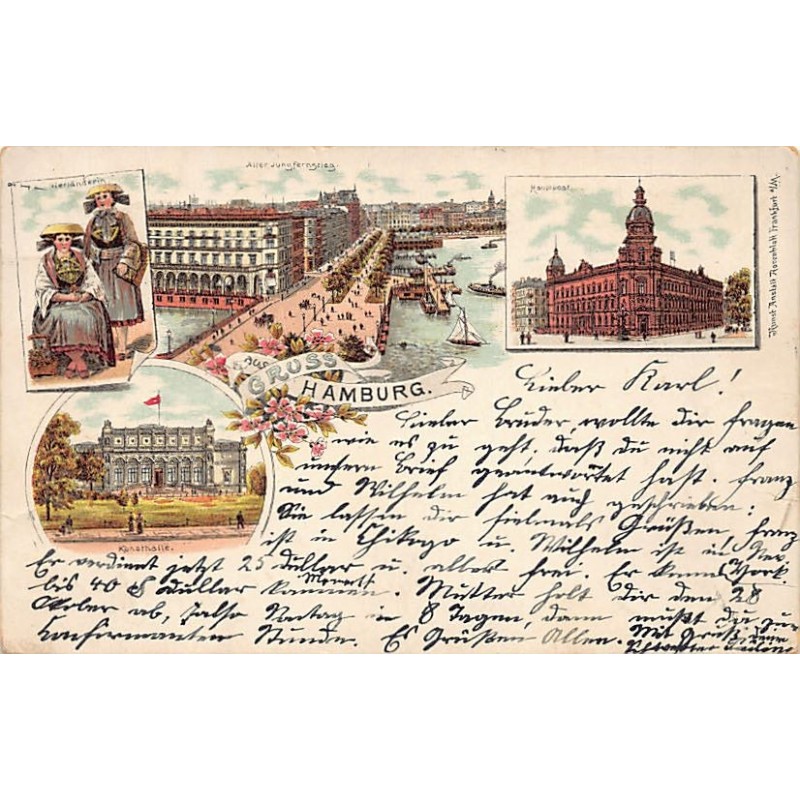 Alter Jungfernstieg.
Vierländerin
Hauptpost.
Kunst Anstalt Rosenblatt Frankfurt a/M.
GRUSS
AUS
HAMBURG.
Kunsthalle.
Lieber Karl!
Lieber Bruder, wollte dir fragen
wie es zu geht, daß du nicht auf
unsern Brief geantwortet hast. Franz
und Wilhelm hat auch geschrieben:
Sie lassen dir fielmals Grüßen, Franz
ist in Chikago u. Wilhelm ist in Neu
York.
Er verdient jetzt 25 Dullar u. alles frei. Er kann
bis 40 Dullar kommen. Monatl.
Mutter holt dir den 28
Oktober ab, also Sontag in 8 Tagen, dann mußt du zur
Konfirmanten Stunde. Es Grüßen Allen. Mit Gruß Deine
Schwester